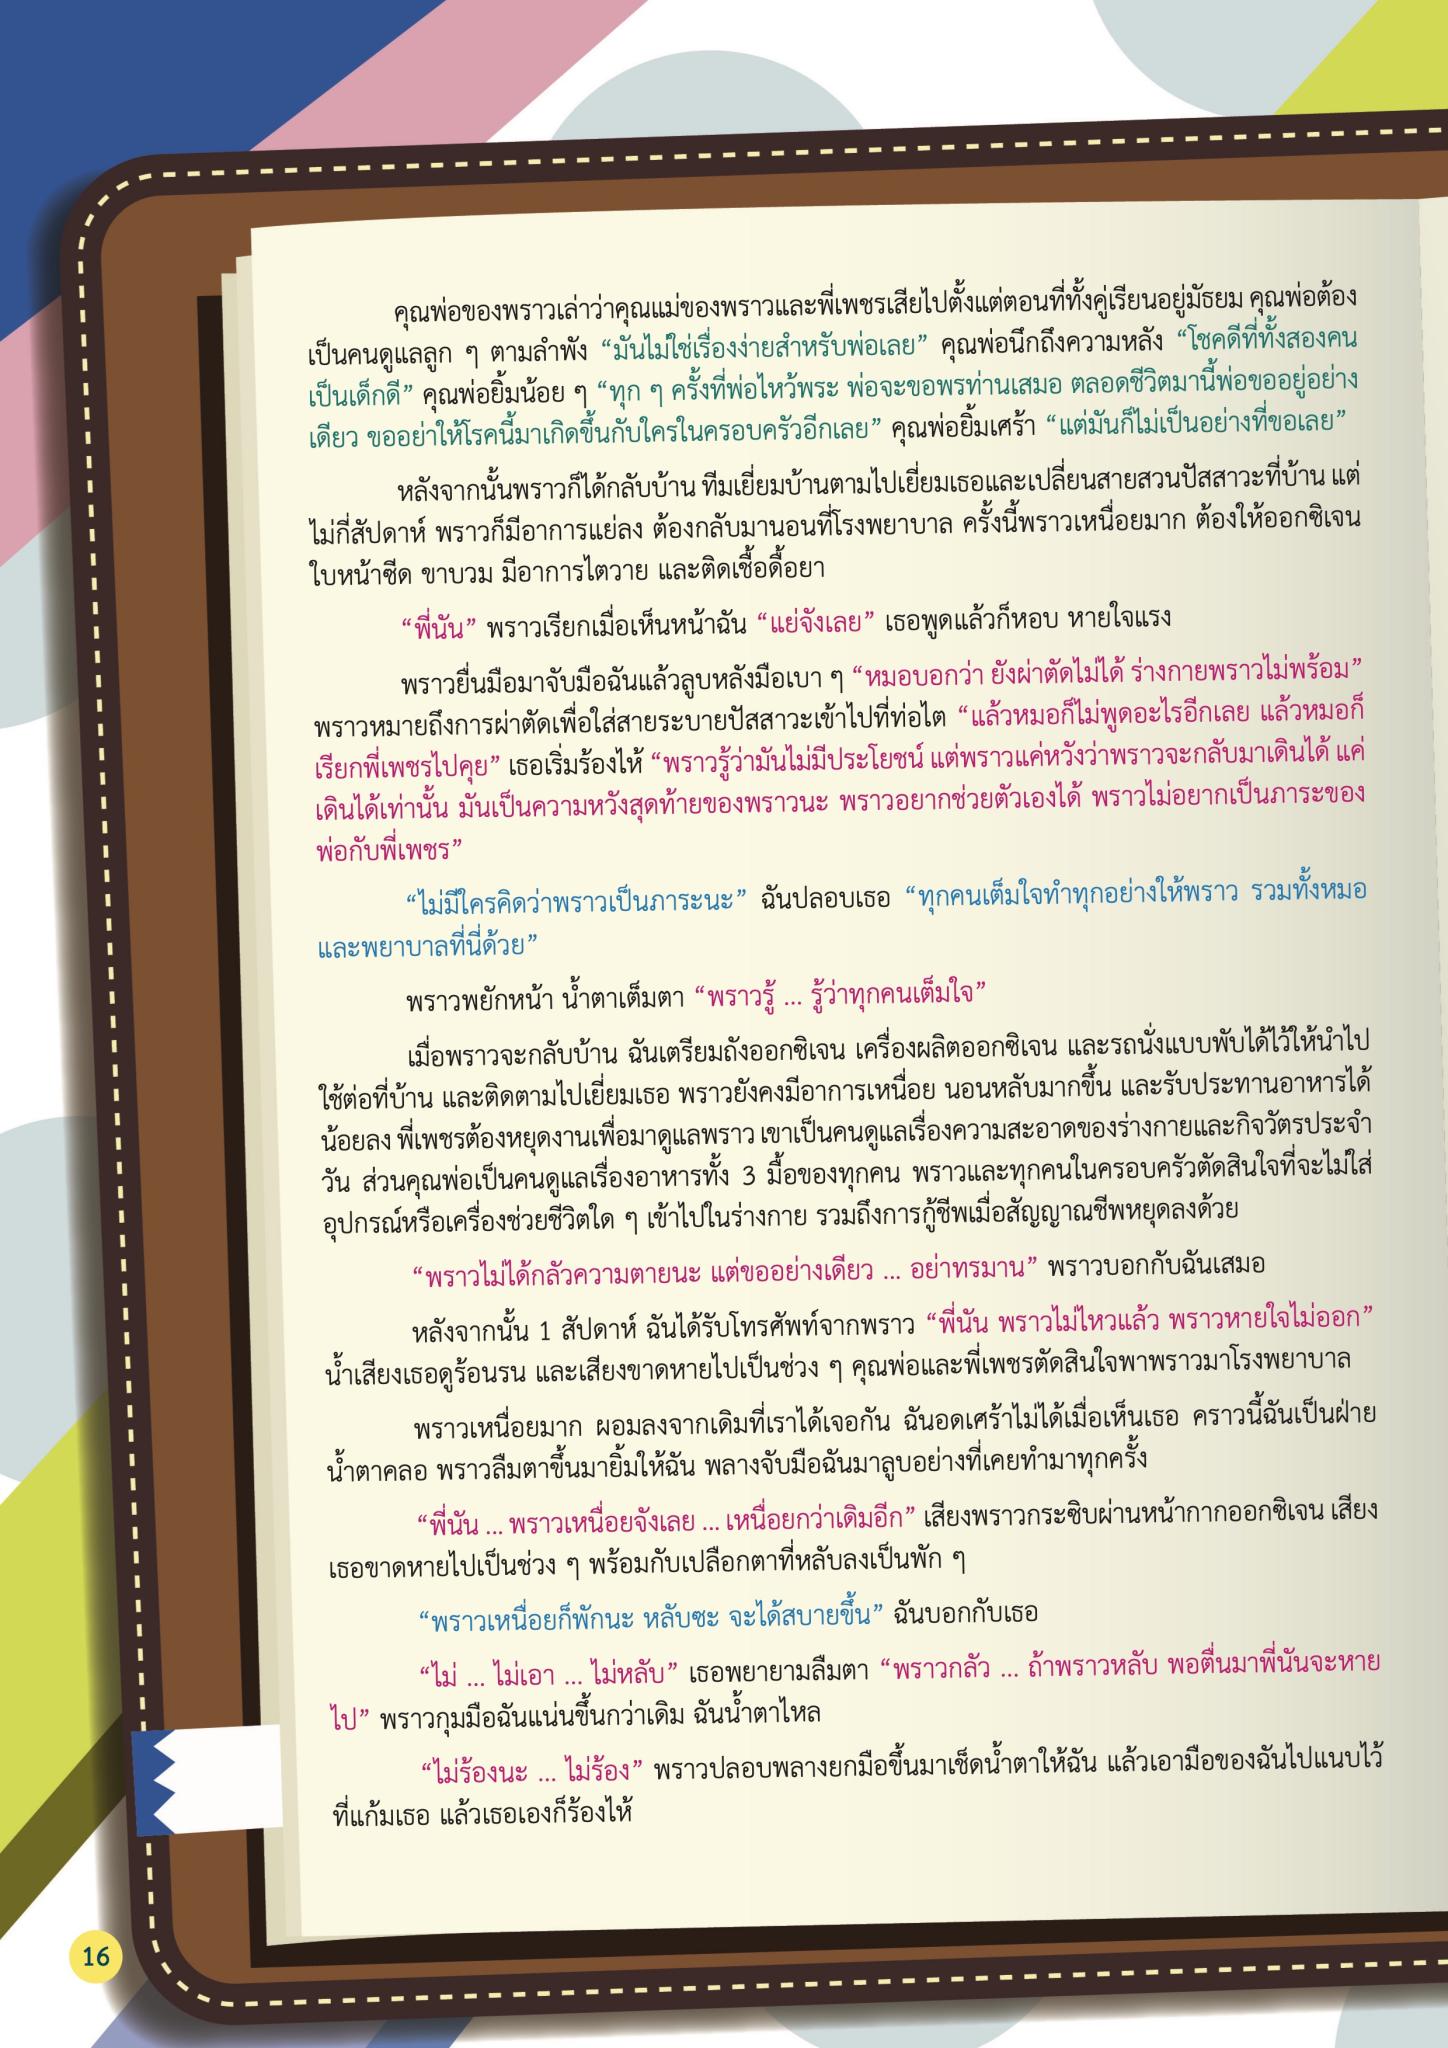 คุณพ่อของพราวเล่าว่าคุณแม่ของพราวและพี่เพชรเสียไปตั้งแต่ตอนที่ทั้งคู่เรียนอยู่มัธยม คุณพ่อต้อง
เป็นคนดูแลลูก ๆ ตามลำพัง “มันไม่ใช่เรื่องง่ายสำหรับพ่อเลย” คุณพ่อนึกถึงความหลัง “โชคดีที่ทั้งสองคน
เป็นเด็กดี” คุณพ่อยิ้มน้อย ๆ “ทุก ๆ ครั้งที่พ่อไหว้พระ พ่อจะขอพรท่านเสมอ ตลอดชีวิตมานี้พ่อขออยู่อย่าง
เดียว ขออย่าให้โรคนี้มาเกิดขึ้นกับใครในครอบครัวอีกเลย” คุณพ่อยิ้มเศร้า “แต่มันก็ไม่เป็นอย่างที่ขอเลย”
หลังจากนั้นพราวก็ได้กลับบ้าน ทีมเยี่ยมบ้านตามไปเยี่ยมเธอและเปลี่ยนสายสวนปัสสาวะที่บ้าน แต่
ไม่กี่สัปดาห์ พราวก็มีอาการแย่ลง ต้องกลับมานอนที่โรงพยาบาล ครั้งนี้พราวเหนื่อยมาก ต้องให้ออกซิเจน
ใบหน้าซีด ขาบวม มีอาการไตวาย และติดเชื้อดื้อยา
“พี่นัน” พราวเรียกเมื่อเห็นหน้าฉัน “แย่จังเลย” เธอพูดแล้วก็หอบ หายใจแรง
พราวยื่นมือมาจับมือฉันแล้วลูบหลังมือเบา ๆ “หมอบอกว่า ยังผ่าตัดไม่ได้ ร่างกายพราวไม่พร้อม”
พราวหมายถึงการผ่าตัดเพื่อใส่สายระบายปัสสาวะเข้าไปที่ท่อไต “แล้วหมอก็ไม่พูดอะไรอีกเลย แล้วหมอก็
เรียกพี่เพชรไปคุย” เธอเริ่มร้องไห้ “พราวรู้ว่ามันไม่มีประโยชน์ แต่พราวแค่หวังว่าพราวจะกลับมาเดินได้ แค่
เดินได้เท่านั้น มันเป็นความหวังสุดท้ายของพราวนะ พราวอยากช่วยตัวเองได้ พราวไม่อยากเป็นภาระของ
พ่อกับพี่เพชร”
“ไม่มีใครคิดว่าพราวเป็นภาระนะ” ฉันปลอบเธอ “ทุกคนเต็มใจทำทุกอย่างให้พราว รวมทั้งหมอ
และพยาบาลที่นี่ด้วย”
พราวพยักหน้า น้ำตาเต็มตา “พราวรู้ ... รู้ว่าทุกคนเต็มใจ”
เมื่อพราวจะกลับบ้าน ฉันเตรียมถังออกซิเจน เครื่องผลิตออกซิเจน และรถนั่งแบบพับได้ไว้ให้นำไป
ใช้ต่อที่บ้าน และติดตามไปเยี่ยมเธอ พราวยังคงมีอาการเหนื่อย นอนหลับมากขึ้น และรับประทานอาหารได้
น้อยลง พี่เพชรต้องหยุดงานเพื่อมาดูแลพราว เขาเป็นคนดูแลเรื่องความสะอาดของร่างกายและกิจวัตรประจำ
วัน ส่วนคุณพ่อเป็นคนดูแลเรื่องอาหารทั้ง 3 มื้อของทุกคน พราวและทุกคนในครอบครัวตัดสินใจที่จะไม่ใส่
อุปกรณ์หรือเครื่องช่วยชีวิตใด ๆ เข้าไปในร่างกาย รวมถึงการกู้ชีพเมื่อสัญญาณชีพหยุดลงด้วย
“พราวไม่ได้กลัวความตายนะ แต่ขออย่างเดียว ... อย่าทรมาน” พราวบอกกับฉันเสมอ
หลังจากนั้น 1 สัปดาห์ ฉันได้รับโทรศัพท์จากพราว “พี่นัน พราวไม่ไหวแล้ว พราวหายใจไม่ออก”
น้ำเสียงเธอดูร้อนรน และเสียงขาดหายไปเป็นช่วง ๆ คุณพ่อและพี่เพชรตัดสินใจพาพราวมาโรงพยาบาล
พราวเหนื่อยมาก ผอมลงจากเดิมที่เราได้เจอกัน ฉันอดเศร้าไม่ได้เมื่อเห็นเธอ คราวนี้ฉันเป็นฝ่าย
น้ำตาคลอ พราวลืมตาขึ้นมายิ้มให้ฉัน พลางจับมือฉันมาลูบอย่างที่เคยทำมาทุกครั้ง
“พี่นัน ... พราวเหนื่อยจังเลย ... เหนื่อยกว่าเดิมอีก” เสียงพราวกระซิบผ่านหน้ากากออกซิเจน เสียง
เธอขาดหายไปเป็นช่วง ๆ พร้อมกับเปลือกตาที่หลับลงเป็นพัก ๆ
“พราวเหนื่อยก็พักนะ หลับซะ จะได้สบายขึ้น” ฉันบอกกับเธอ
“ไม่ ... ไม่เอา ... ไม่หลับ” เธอพยายามลืมตา “พราวกลัว ... ถ้าพราวหลับ พอตื่นมาพี่นันจะหาย
ไป” พราวกุมมือฉันแน่นขึ้นกว่าเดิม ฉันน้ำตาไหล
“ไม่ร้องนะ ... ไม่ร้อง” พราวปลอบพลางยกมือขึ้นมาเช็ดน้ำตาให้ฉัน แล้วเอามือของฉันไปแนบไว้
ที่แก้มเธอ แล้วเธอเองก็ร้องไห้
16